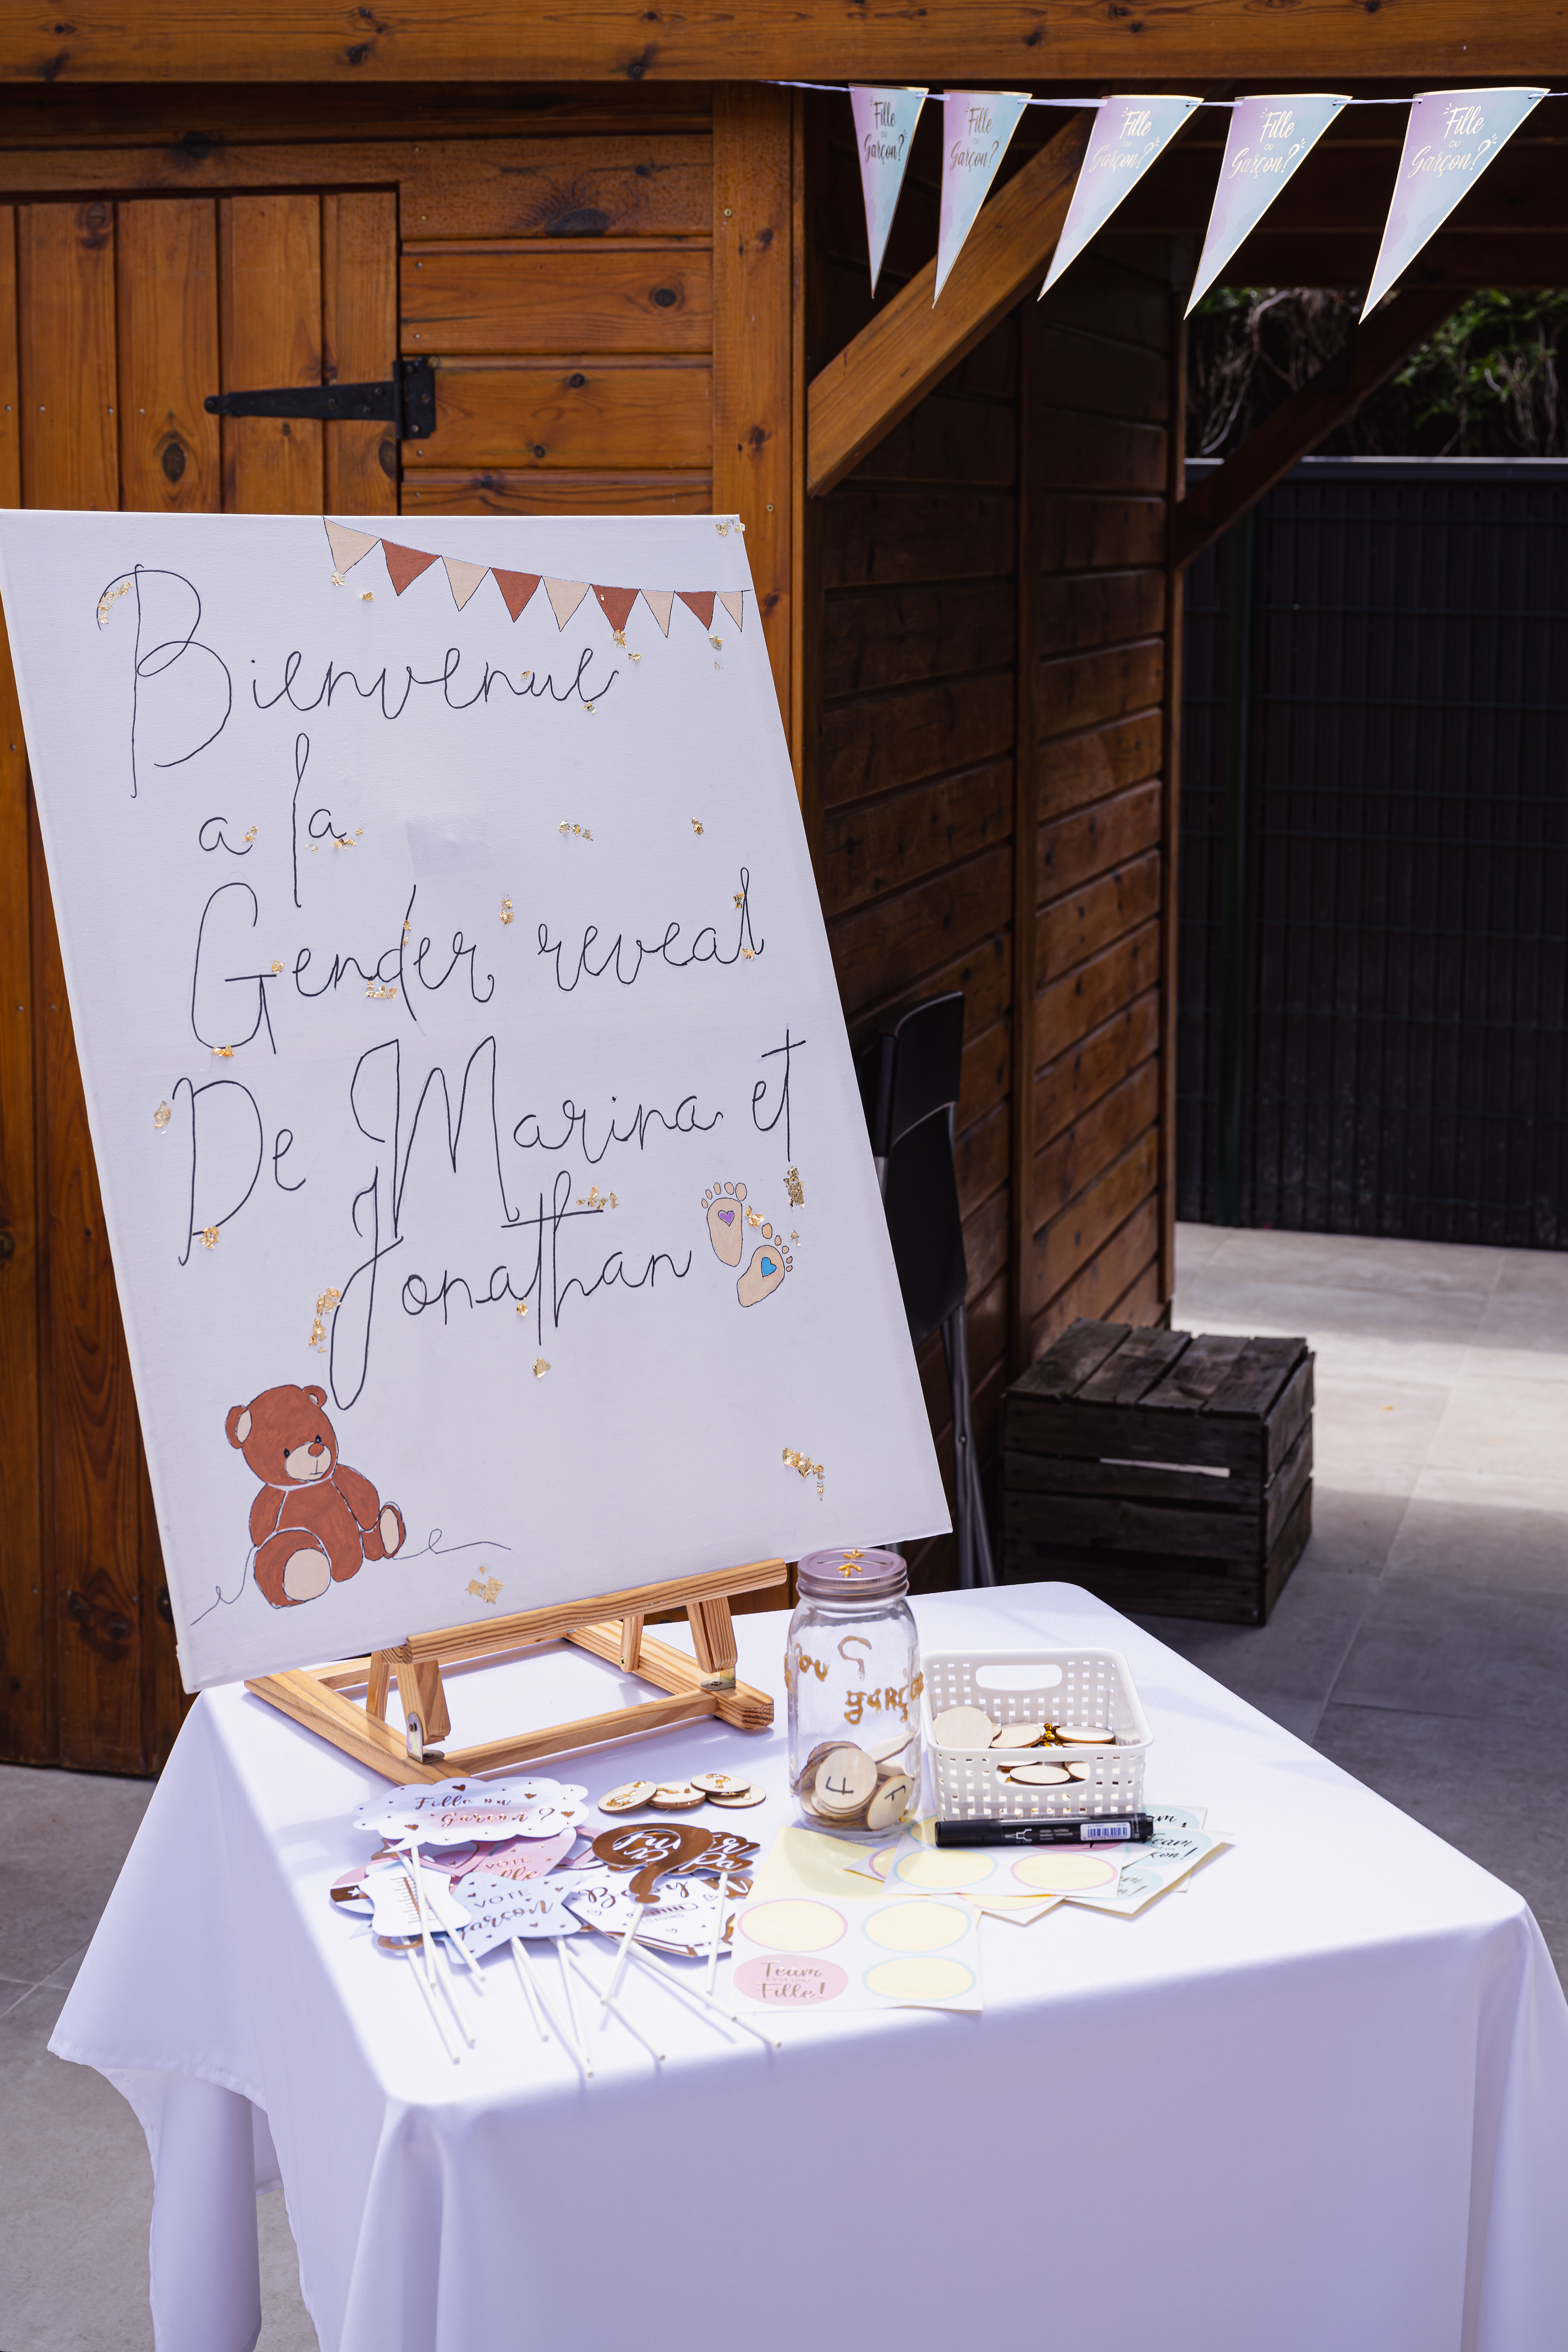 Fille
ou
Garçon?
Fille
ou
Garçon?
Fille
ou
Garçon?
Fille
ou
Garçon?
Fille
ou
Garçon?
Bienvenue
a la
Gender reveal
De Marina et
Jonathan
ou
garç
F
Fille ou
Garçon ?
VOTE
VOTE
Garçon
Team
Team
Fille!